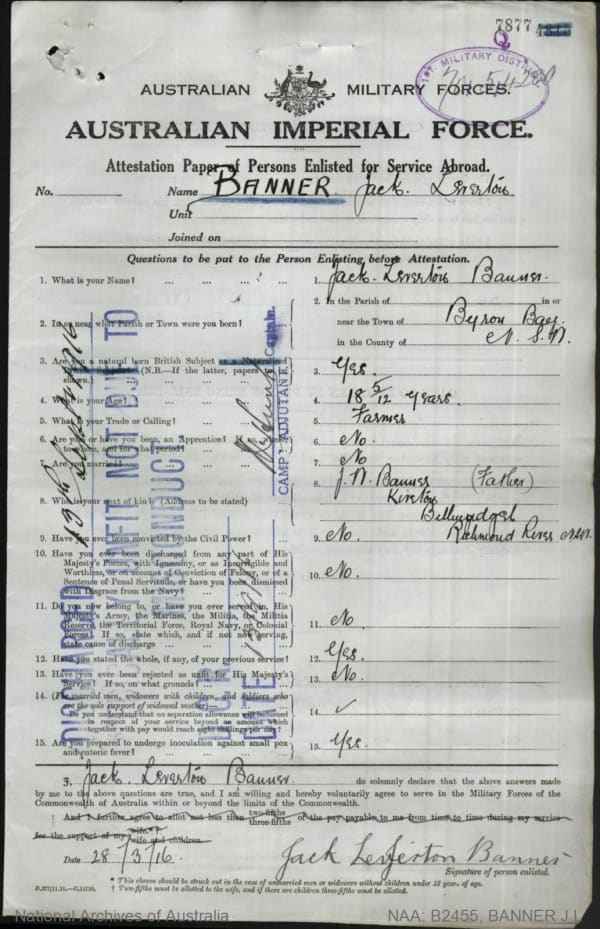 7877
Q
1ST. MILITARY DISTRICT
AUSTRALIAN MILITARY FORCES.
AUSTRALIAN IMPERIAL FORCE.
Attestation Paper of Persons Enlisted for Service Abroad.
No. Name BANNER Jack. Leverton
Unit
Joined on
Questions to be put to the Person Enlisting before Attestation.
1. What is your Name? 1. Jack. Leverton Banner.
2. In or near what Parish or Town were you born? 2. In the Parish of in or
near the Town of Byron Bay.
in the County of N. S. W.
3. Are you a natural born British Subject or a Naturalized
British Subject? (N.B.—If the latter, papers to be
shown.) 3. Yes.
4. What is your Age? 4. 18 5/12 Years.
5. What is your Trade or Calling? 5. Farmer
6. Are you or have you been, an Apprentice? If so where,
to whom, and for what period? 6. No.
7. Are you married? 7. No
8. Who is your next of kin? (Address to be stated) 8. J. W. Banner (Father)
Richmond River N.S.W.
9. Have you ever been convicted by the Civil Power? 9. No.
10. Have you ever been discharged from any part of His
Majesty's Forces, with Ignominy, or as Incorrigible and
Worthless, or on account of Conviction of Felony, or of a
Sentence of Penal Servitude, or have you been dismissed
with Disgrace from the Navy? 10. No.
11. Do you now belong to, or have you ever served in, His
Majesty's Army, the Marines, the Militia, the Militia
Reserve, the Territorial Force, Royal Navy, or Colonial
Forces? If so, state which, and if not now serving,
state cause of discharge 11. No
12. Have you stated the whole, if any, of your previous service? 12. Yes.
13. Have you ever been rejected as unfit for His Majesty's
Service? If so, on what grounds 13. No.
14. (For married men, widowers with children, and soldiers who
are the sole support of widowed mother)—
Do you understand that no separation allowance will be issued
in respect of your service beyond an amount which
together with pay would reach eight shillings per day? 14. ✓
15. Are you prepared to undergo inoculation against small pox
and enteric fever? 15. Yes.
DISCHARGED
MEDICALLY UNFIT NOT DUE TO
MISCONDUCT
DATE
CAMP ADJUTANT
Captain.
I, Jack Leverton Banner. do solemnly declare that the above answers made
by me to the above questions are true, and I am willing and hereby voluntarily agree to serve in the Military Forces of the
Commonwealth of Australia within or beyond the limits of the Commonwealth.
And I further agree to allot not less than two-fifths three-fifths of the pay payable to me from time to time during my service
for the support of my wife. wife and children.
Date 28/3/16. Jack Leverton Banner
Signature of person enlisted.
* This clause should be struck out in the case of unmarried men or widowers without children under 18 years of age.
† Two-fifths must be allotted to the wife, and if there are children three-fifths must be allotted.
National Archives of Australia NAA: B2455, BANNER J L